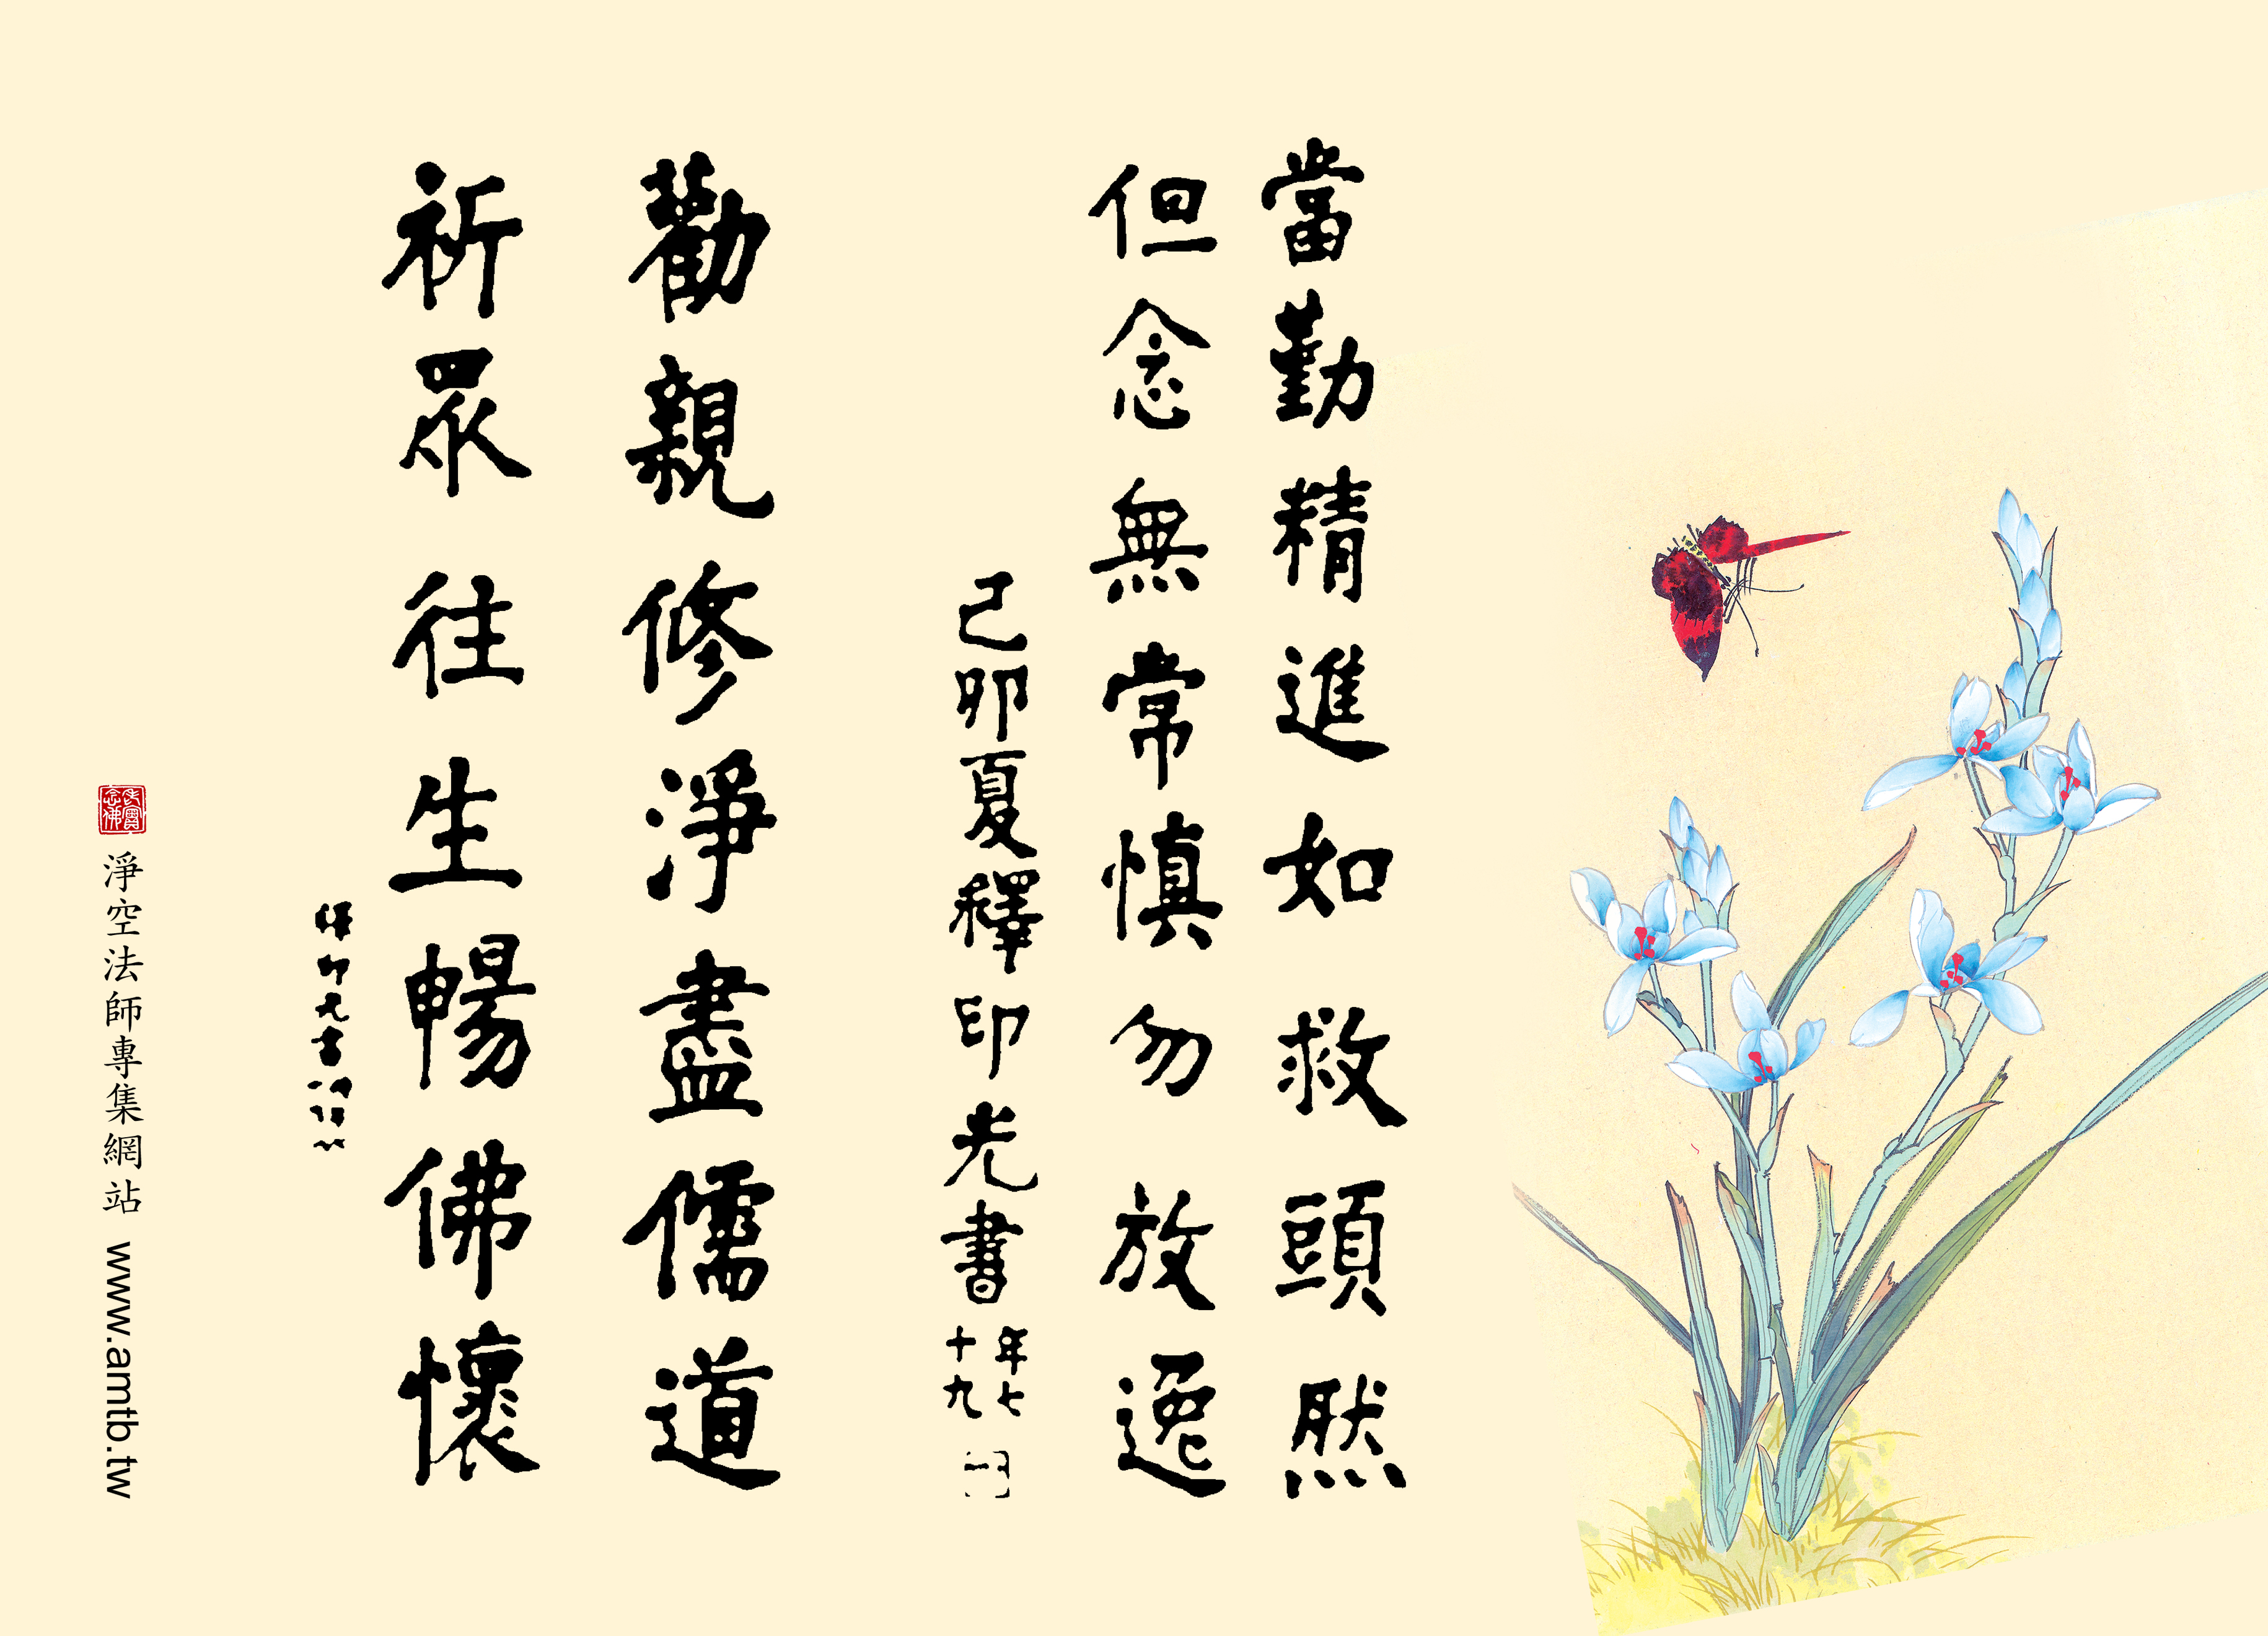 當勤精進如救頭然
但念無常慎勿放逸
己卯夏釋印光書
年七
十九
勸親修淨盡儒道
祈眾往生暢佛懷
釋印光書
淨空法師專集網站 www.amtb.tw